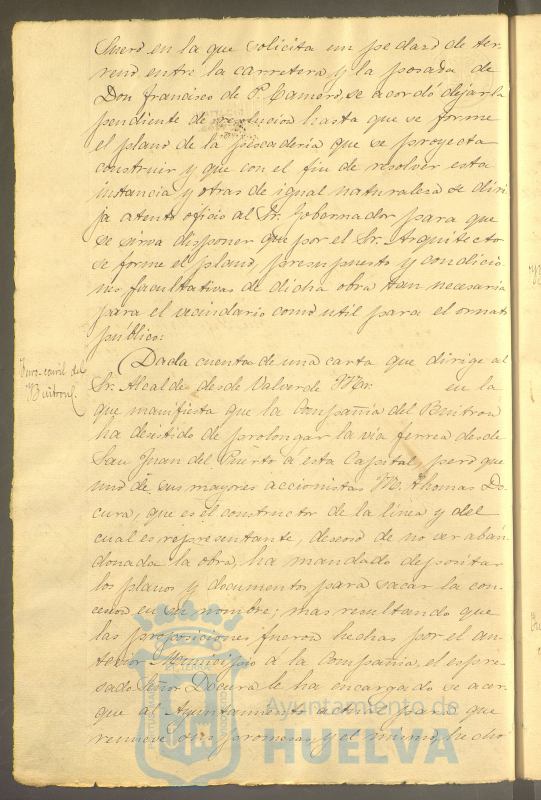 Suero en la que solicita un pedazo de ter-
reno entre la carretera y la posada de
Don Francisco de P. Camero, se acordó dejarla
pendiente de resolucion hasta que se forme
el plano de la pescaderia que se proyecta
construir y que con el fin de resolver esta
instancia y otras de igual naturaleza se diri-
ja atento oficio al Sr. Gobernador para que
se sirva disponer que por el Sr. Arquitecto
se forme el plano, presupuesto y condicio-
nes facultativas de dicha obra tan necesaria
para el vecindario como util para el ornato
publico.
Ferro-carril del
Buitron.
Dada cuenta de una carta que dirige al
Sr. Alcalde desde Valverde Mr. en la
que manifiesta que la Compañia del Buitron
ha desistido de prolongar la via ferrea desde
San Juan del Puerto á esta Capital, pero que
uno de sus mayores accionistas Mr. Thomas Do-
cura, que es el constructor de la linea y del
cual es representante, deseoso de no ver aban-
donada la obra, ha mandado depositar
los planos y documentos para sacar la con-
cesion en su nombre; mas resultando que
las proposiciones fueron hechas por el an-
terior Municipio á la Compañia, el espre-
sado Señor Docura le ha encargado se acer-
que al Ayuntamiento actual para que
renueve sus promesas, y el mismo, hecho
Ayuntamiento de
HUELVA